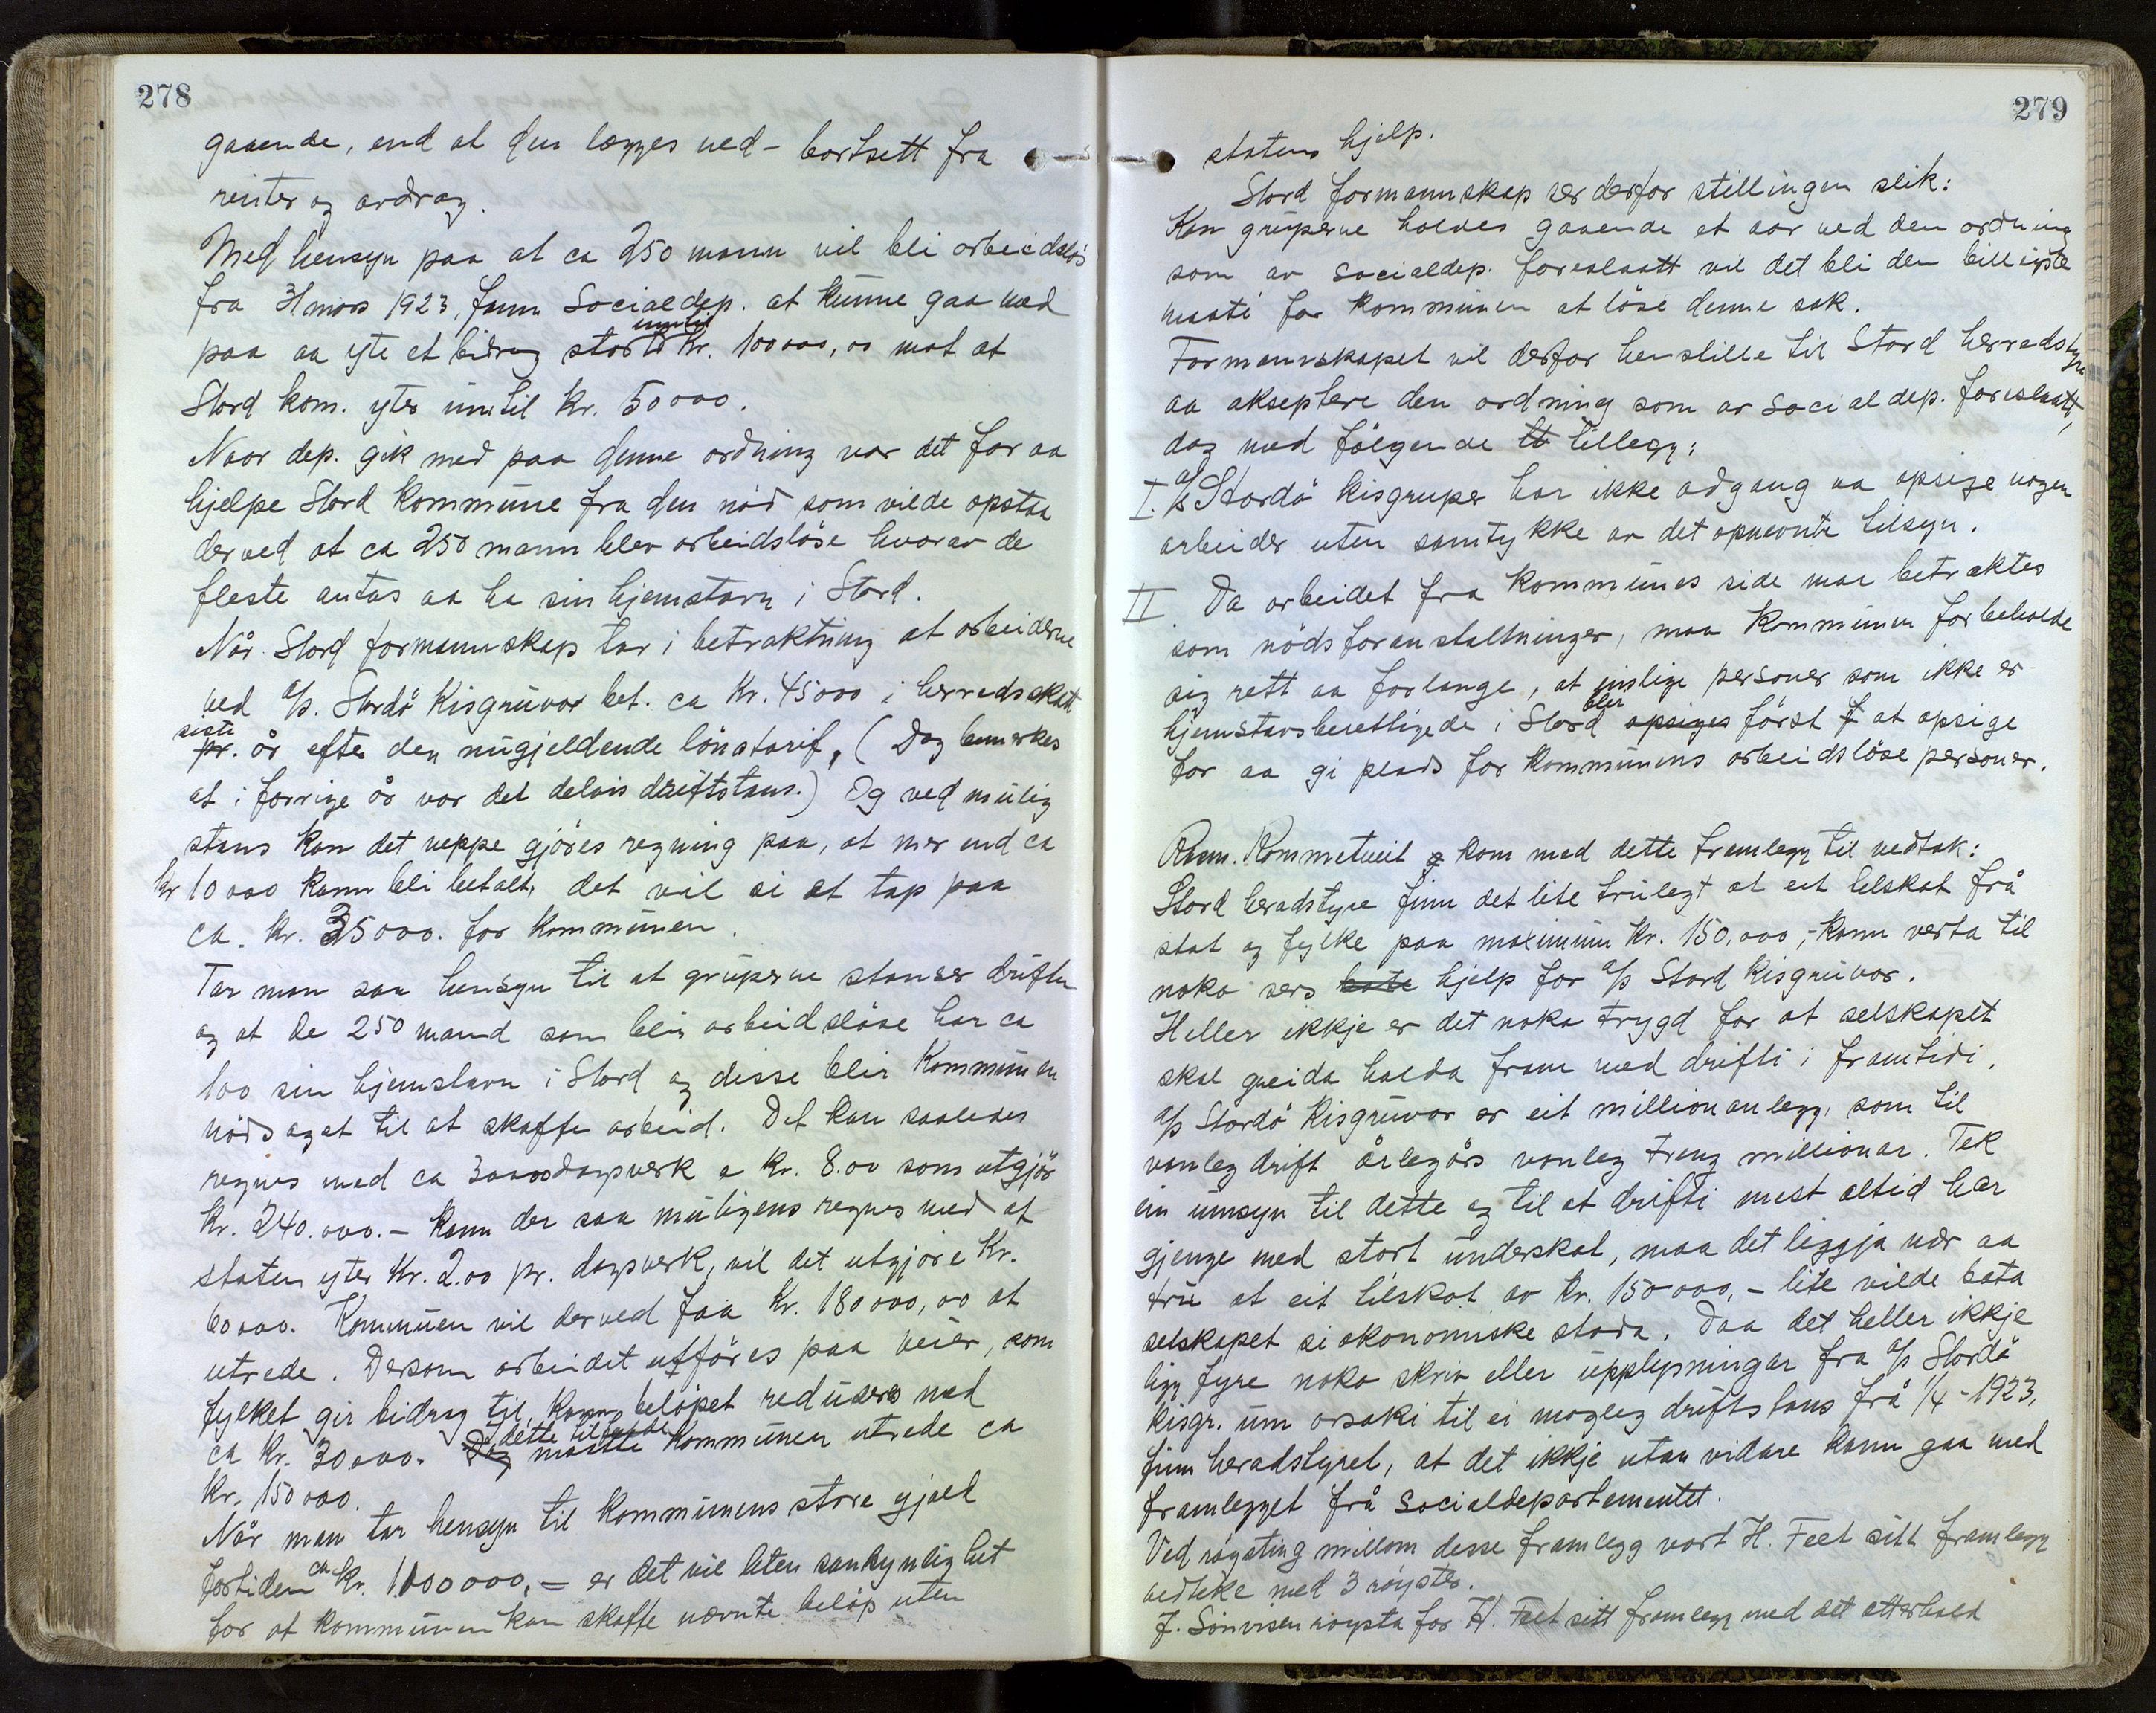 278
gaaende, end at den lægges ned - bortsett fra
renter og avdrag.
Med hensyn paa at ca 250 mann vil bli arbeidsløs
fra 31 mars 1923, fann Socialdep. at kunne gaa med
paa aa yte et bidrag stort inntil kr. 100000,00 mot at
Stord kom. yter inntil kr. 50000.
Naar dep. gik med paa denne ordning var det for aa
hjelpe Stord kommune fra den nöd som vilde opstaa
derved at ca 250 mann blev arbeidslöse hvorav de
fleste antas aa ha sin hjemstavn i Stord.
Når Stord formannskap tar i betraktning at arbeiderne
ved A/S. Stordö Kisgruvor bet. ca kr. 45000 i herredsskatt
siste pr. år efter den nugjeldende lönstarif, (Dog bemerkes
at i forrige år var det delvis driftstans.) Og ved mulig
stans kan det neppe gjöres regning paa, at mer end ca
kr 10000 kann bli betalt, det vil si et tap paa
ca. kr. 35000. for kommunen.
Tar man saa hensyn til at gruperne stanser driften
og at de 250 mand som blir arbeidslöse har ca
100 sin hjemstavn i Stord og disse blir kommunen
nödsaget til at skaffe arbeid. Det kan saaledes
regnes med ca 30000 dagsverk a kr. 8.00 som utgjör
kr. 240.000.- kann der saa muligens regnes med at
staten yter kr. 2.00 pr. dagsverk, vil det utgjöre kr.
60000. Kommunen vil derved faa kr. 180000,00 at
utrede. Dersom arbeidet utföres paa veier, som
fylket gir bidrag til, kann belöpet reduseres med
ca kr. 30000. Dog I dette tilfelde maatte kommunen utrede ca
kr. 150000.
Når man tar hensyn til kommunens store gjæld
fortiden ca kr. 1000000,- er det vil liten sansynlighet
for at kommunen kan skaffe nævnte belöp uten
279
statens hjelp.
Stord formannskap ser derfor stillingen slik:
Kan gruperne holdes gaaende et aar ved den ordning
som av socialdep. foreslaatt vil det bli den billigste
maate for kommunen at löse denne sak.
Formannskapet vil derfor henstille til Stord herredstyre
aa akseptere den ordning som av socialdep. foreslaatt,
dog med fölgende tt tillegg:
I. A/S Stordö Kisgruper har ikke adgang aa opsige nogen
arbeider uten samtykke av det opnevnte tilsyn.
II Da arbeidet fra kommunes side maa betraktes
som nödsforanstaltninger, maa kommunen forbeholde
sig rett aa forlange, at enslige personer som ikke er
hjemstavsberettigede i Stord opsiges blir först f at opsige
for aa gi plads for kommunens arbeidslöse personer.
Rasm. Rommetveit g kom med dette framlegg til vedtak:
Stord heradstyre finn det lite trulegt at eit tilskot frå
stat og fylke paa maximum kr. 150,000,- kann verta til
noko sers bate hjelp for A/S Stord Kisgruvor.
Heller ikkje er det noko trygd for at selskapet
skal greida halda fram med drifti i framtidi.
A/S Stordö Kisgruvor er eit millionanlegg, som til
vanleg drift årlegårs vanleg treng millionar. Tek
ein umsyn til dette og til at drifti mest altid har
gjenge med stort underskot, maa det liggja nær aa
tru at eit tilskot av kr. 150000,- lite vilde bata
selskapet si okonomiske stoda. Daa det heller ikkje
ligg fyre noko skriv eller upplysningar fra A/S Stordö
Kisgr. um orsaki til ei mogleg driftstans frå 1/4 - 1923,
finn heradstyret, at det ikkje utan vidare kann gaa med
framlegget frå Socialdepartementet.
Ved röysting millom desse framlegg vart H. Feet sitt framlegg
vedteke med 3 röyster.
J. Sönvisen röysta for H. Feet sitt framlegg med det atterhald